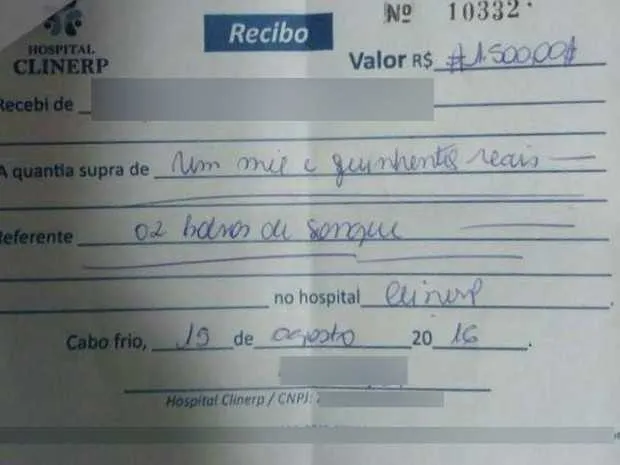 Nº 10332
HOSPITAL
CLINERP
Recibo
Valor R$ #1.500,00#
Recebi de
A quantia supra de Um mil e quinhentos reais
Referente 02 bolsas de sangue
no hospital Clinerp
Cabo frio, 19 de agosto 2016.
Hospital Clinerp / CNPJ: